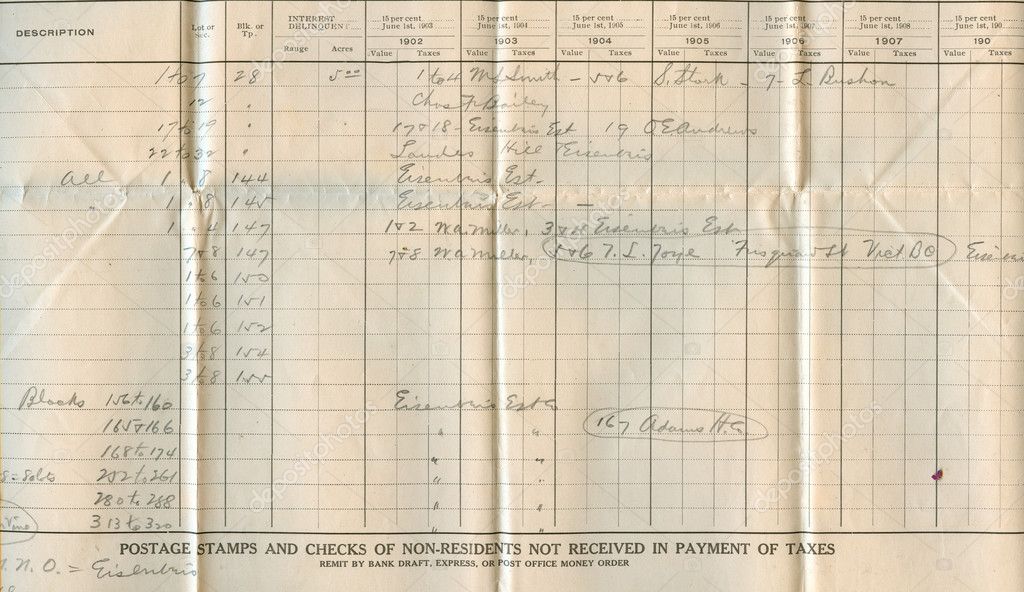 DESCRIPTION Lot or Sec. Blk. or Tp. INTEREST DELINQUENT Range Acres
15 per cent June 1st, 1903 15 per cent June 1st, 1904 15 per cent June 1st, 1905 15 per cent June 1st, 1906 15 per cent June 1st, 1907 15 per cent June 1st, 1908 15 per cent June 1st, 190
1902 1903 1904 1905 1906 1907 190
Value Taxes Value Taxes Value Taxes Value Taxes Value Taxes Value Taxes Value
1 to 7 28 5 00 1 to 4 Smith - 5 & 6 S. Stork - 7 - L Bushon
12 " Chas F Bailey
17 to 19 " 17 & 18 - Eisenbris Est 19 O E Andrews
22 to 32 " Landes Hill Eisenbris
All 1 . 8 144 Eisenbris Est -
" 1 . 8 145 Eisenbris Est - —
1 . 4 147 1 & 2 W a Miller, 3 & 4 Eisenbris Est
7 & 8 147 7 & 8 W a Miller, 5 & 6 T. L. Joye St Vict BC
1 to 6 150
1 to 6 151
1 to 6 152
3 to 8 154
3 to 8 155
Blocks 156 to 160 Eisenbris Est Co
165 & 166 " " 167 Adams H. C.
168 to 174 " "
252 to 261 " "
280 to 288 " "
313 to 320 " "
POSTAGE STAMPS AND CHECKS OF NON-RESIDENTS NOT RECEIVED IN PAYMENT OF TAXES
REMIT BY BANK DRAFT, EXPRESS, OR POST OFFICE MONEY ORDER
N. O. = Eisenbris
depositphotos